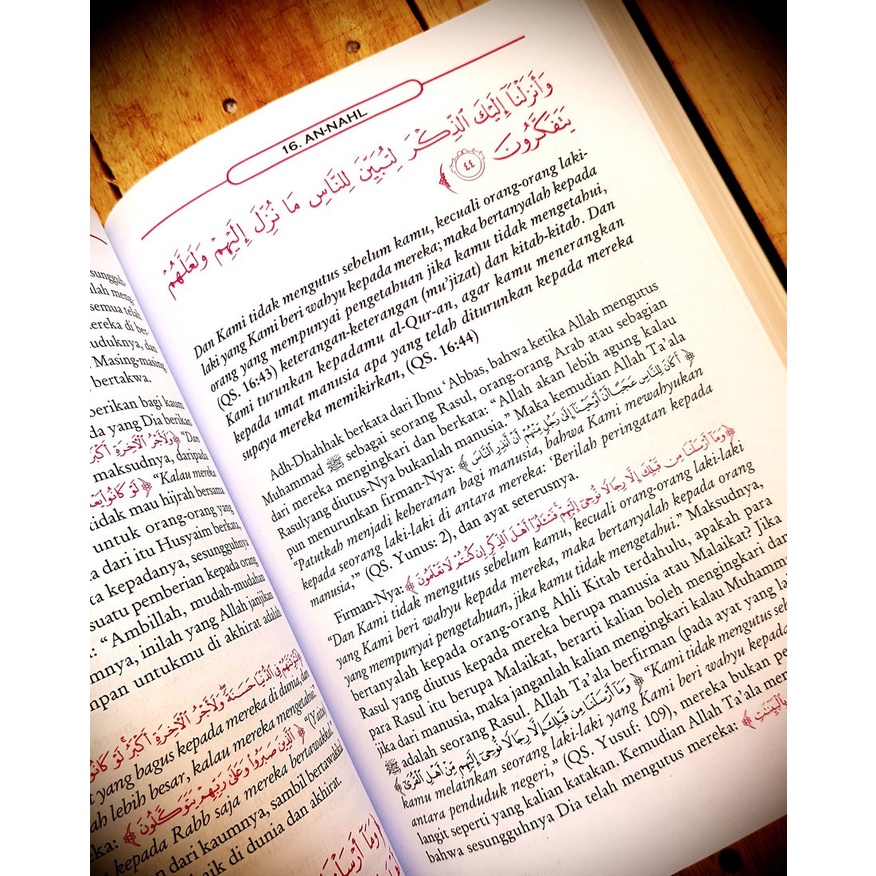 sungguh-
ilah meng-
semua telah
ereka di ber-
uduknya, dan
Masing-masing
bertakwa.
berikan bagi kaum
da yang Dia berikan
﴿ وَلَأَجْرُ الْآخِرَةِ أَكْبَرُ “Dan
maksudnya, daripada
﴿ لَوْ كَانُوا “Kalau mereka
tidak mau hijrah bersama
untuk orang-orang yang
a dari itu Husyaim berkata,
ta kepadanya, sesungguhnya
suatu pemberian kepada orang
i: “Ambillah, mudah-mudahan
umnya, inilah yang Allah janjikan
mpan untukmu di akhirat adalah
فِي الدُّنْيَا حَسَنَةً وَلَأَجْرُ الْآخِرَةِ أَكْبَرُ لَوْ كَانُوا
t yang bagus kepada mereka di dunia, dan
h lebih besar, kalau mereka mengetahui.”
﴿ الَّذِينَ صَبَرُوا وَعَلَىٰ رَبِّهِمْ يَتَوَكَّلُونَ ﴾ “(Yaitu)
kepada Rabb saja mereka bertawakkal.”
dari kaumnya, sambil bertawakkal
baik di dunia dan akhirat.
16. AN-NAHL
وَأَنْزَلْنَا إِلَيْكَ الذِّكْرَ لِتُبَيِّنَ لِلنَّاسِ مَا نُزِّلَ إِلَيْهِمْ وَلَعَلَّهُمْ
يَتَفَكَّرُونَ ٤٤ ﴾
Dan Kami tidak mengutus sebelum kamu, kecuali orang-orang laki-
laki yang Kami beri wahyu kepada mereka; maka bertanyalah kepada
orang yang mempunyai pengetahuan jika kamu tidak mengetahui,
(QS. 16:43) keterangan-keterangan (mu’jizat) dan kitab-kitab. Dan
Kami turunkan kepadamu al-Qur-an, agar kamu menerangkan
kepada umat manusia apa yang telah diturunkan kepada mereka
supaya mereka memikirkan, (QS. 16:44)
Adh-Dhahhak berkata dari Ibnu ‘Abbas, bahwa ketika Allah mengutus
Muhammad ﷺ sebagai seorang Rasul, orang-orang Arab atau sebagian
dari mereka mengingkari dan berkata: “Allah akan lebih agung kalau
Rasulyang diutus-Nya bukanlah manusia.” Maka kemudian Allah Ta’ala
pun menurunkan firman-Nya: ﴿ أَكَانَ لِلنَّاسِ عَجَبًا أَنْ أَوْحَيْنَا إِلَىٰ رَجُلٍ مِنْهُمْ أَنْ أَنْذِرِ النَّاسَ ﴾
“Patutkah menjadi keheranan bagi manusia, bahwa Kami mewahyukan
kepada seorang laki-laki di antara mereka: ‘Berilah peringatan kepada
manusia,’” (QS. Yunus: 2), dan ayat seterusnya.
Firman-Nya: ﴿ وَمَا أَرْسَلْنَا مِنْ قَبْلِكَ إِلَّا رِجَالًا نُوحِي إِلَيْهِمْ فَاسْأَلُوا أَهْلَ الذِّكْرِ إِنْ كُنْتُمْ لَا تَعْلَمُونَ ﴾
“Dan Kami tidak mengutus sebelum kamu, kecuali orang-orang laki-laki
yang Kami beri wahyu kepada mereka, maka bertanyalah kepada orang
yang mempunyai pengetahuan, jika kamu tidak mengetahui.” Maksudnya,
bertanyalah kepada orang-orang Ahli Kitab terdahulu, apakah para
Rasul yang diutus kepada mereka berupa manusia atau Malaikat? Jika
para Rasul itu berupa Malaikat, berarti kalian boleh mengingkari dan
jika dari manusia, maka janganlah kalian mengingkari kalau Muhamma
ﷺ adalah seorang Rasul. Allah Ta’ala berfirman (pada ayat yang la
﴿ وَمَا أَرْسَلْنَا مِنْ قَبْلِكَ إِلَّا رِجَالًا نُوحِي إِلَيْهِمْ مِنْ أَهْلِ الْقُرَىٰ ﴾ “Kami tidak mengutus seb
kamu melainkan seorang laki-laki yang Kami beri wahyu kepada
antara penduduk negeri,” (QS. Yusuf: 109), mereka bukan pe
langit seperti yang kalian katakan. Kemudian Allah Ta’ala men
bahwa sesungguhnya Dia telah mengutus mereka: ﴿ بِالْبَيِّنَاتِ